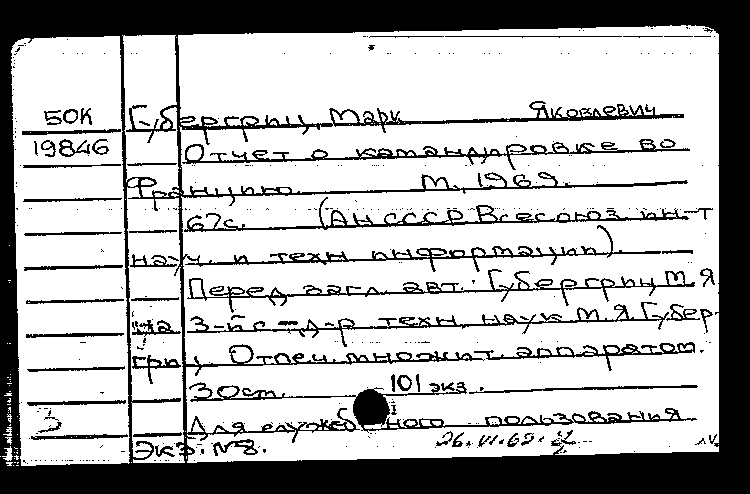 БОК
19846
Губергриц, Марк Яковлевич
Отчет о камандировке во
Францию. М., 1969.
67с. (АН СССР Всесоюз ин-т
науч. и техн информации).
Перед загл. авт.: Губергриц М.Я
на 3-й с - д-р техн. наук М.Я. Губер-
гриц Отпеч. множит. аппаратом.
30 ст. 101 экз.
Для служебного пользования
Экз. №8. 26.VI.69.
3